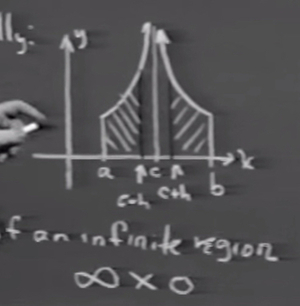 lly:
y
a c b x
c-h c+h
f an infinite region
∞ × 0